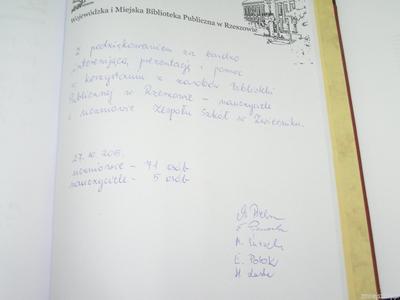 Wojewódzka i Miejska Biblioteka Publiczna w Rzeszowie
Z podziękowaniem za bardzo
interesującą prezentację i pomoc
w korzystaniu z zasobów Biblioteki
Publicznej w Rzeszowie - nauczyciele
i uczniowie Zespołu Szkół w
27.10.
uczniowie - 71 osób
nauczyciele - 5 osób
E. Polak